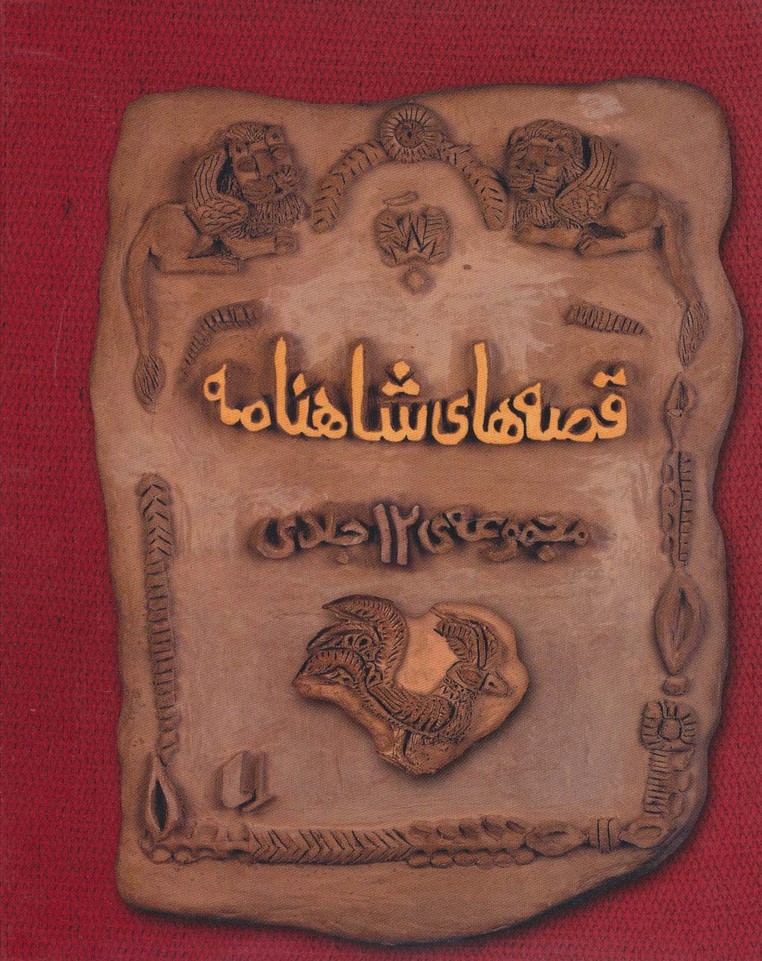 قصه‌های شاهنامه
مجموعه‌ی ۱۲ جلدی